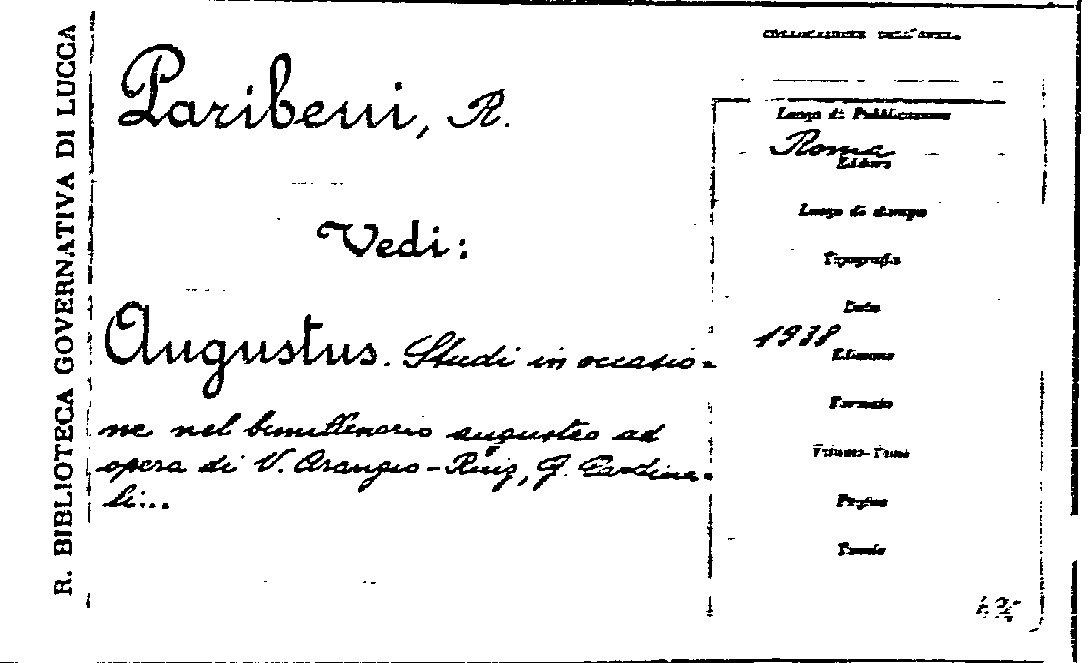 R. BIBLIOTECA GOVERNATIVA DI LUCCA
Paribeni, R.
Vedi:
Augustus. Studi in occasio=
ne nel bimillenario augusteo ad
opera di V. Arangio-Ruiz, G. Cardina=
li...
COLLOCAZIONE DELL'OPERA
Luogo di Pubblicazione
Roma
Editore
Luogo di stampa
Tipografia
Data
1938
Edizione
Formato
Volume-Tomo
Pagine
Tavole